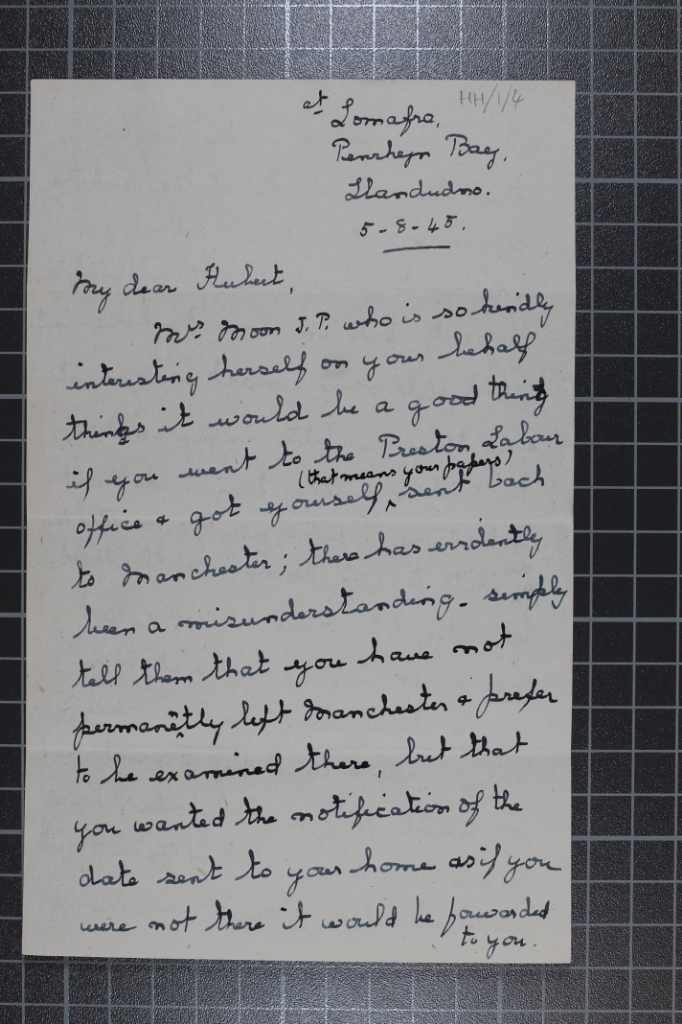 HH/1/4
at Lomafra,
Penrhyn Bay,
Llandudno.
5-8-45.
My dear Hubert,
Mrs. Moon J.P. who is so kindly
interesting herself on your behalf
thinks it would be a good thing
if you went to the Preston Labour
(that means your papers)
office & got yourself ^ sent back
to Manchester; there has evidently
been a misunderstanding - simply
tell them that you have not
permanently left Manchester & prefer
to be examined there, but that
you wanted the notification of the
date sent to your home as if you
were not there it would be forwarded
to you.